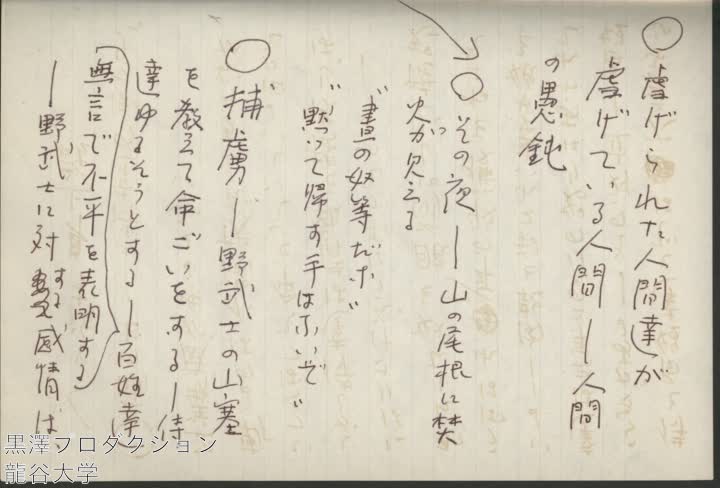 ○虐げられた人間達が
虐げている人間―人間
の愚鈍
○その夜―山の尾根に焚
火が見える
"晝の奴等だ"
"黙って帰す手はないぞ"
○捕虜―野武士の山塞
を教えて命ごいをする―侍
達ゆるそうとする―百姓達
無言で不平を表明する
―野武士に対する感情は
黒澤プロダクション
龍谷大学